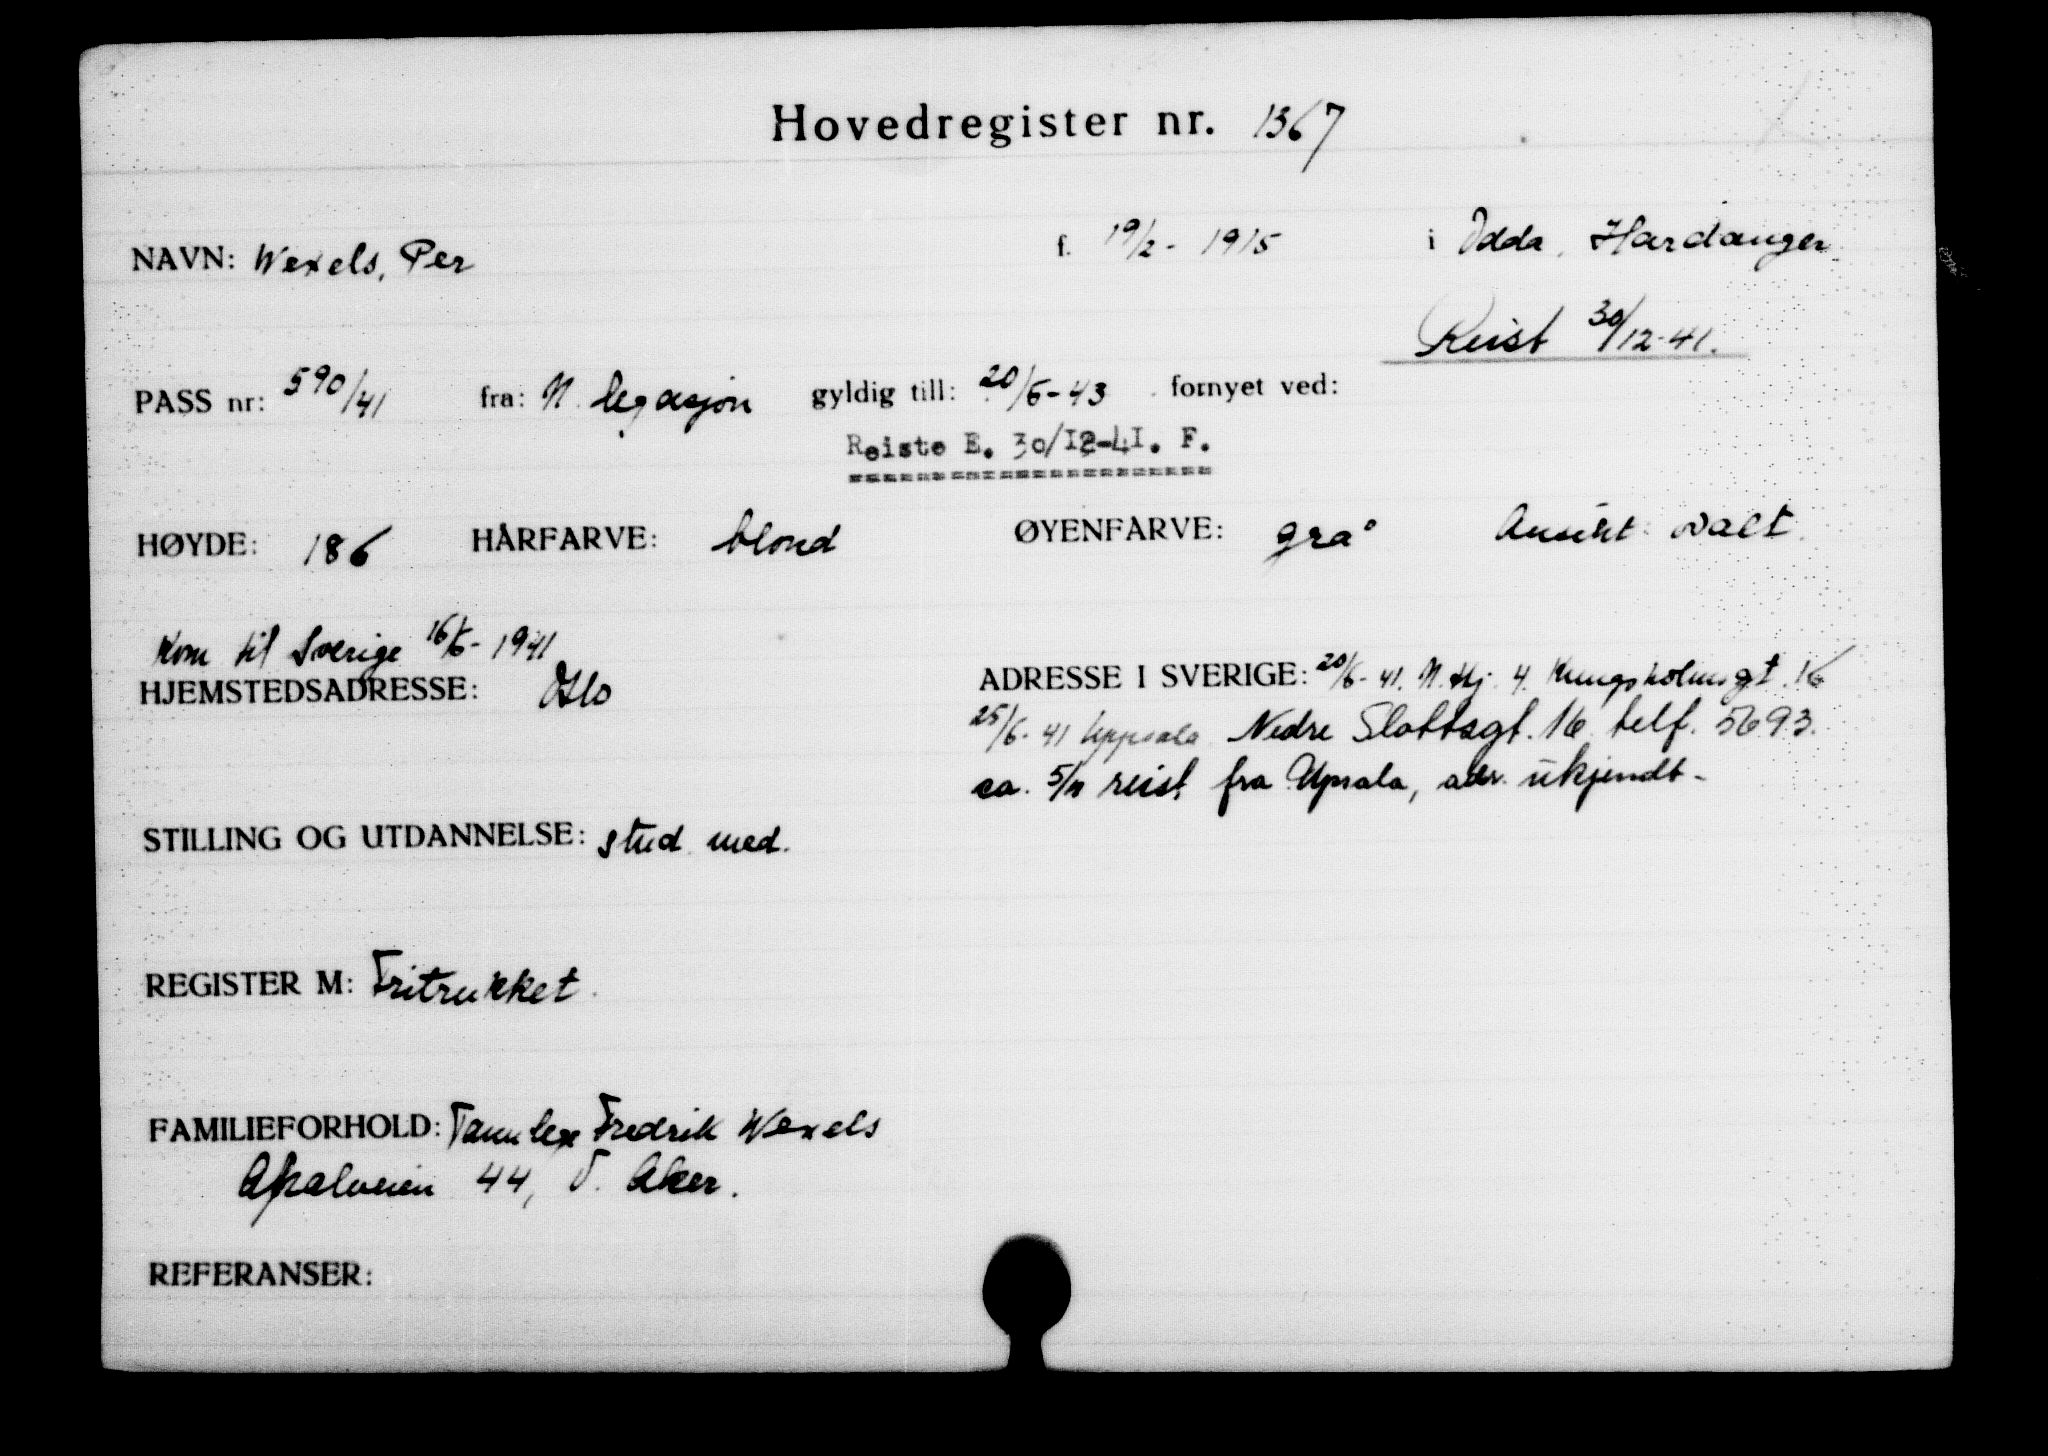 Hovedregister nr. 1367
NAVN: Wexels, Per f. 19/2 - 1915 i Odda, Hardanger.
Reist 30/12-41.
PASS nr: 590/41 fra: N. legasjon gyldig till: 20/6-43 fornyet ved:
Reiste E. 30/I2-4I. F.
HØYDE: 186 HÅRFARVE: blond ØYENFARVE: grå Ansikt ovalt.
Kom til Sverige 16/6 - 1941
HJEMSTEDSADRESSE: Oslo ADRESSE I SVERIGE: 20/6-41. N. Hj. 4. Kungsholmsgt. 16
25/6-41 Uppsala Nedre Slottsgt. 16 telf. 5693.
ca. 5/11 reist fra Upsala, adr. ukjendt -
STILLING OG UTDANNELSE: stud. med.
REGISTER M: Fritrukket.
FAMILIEFORHOLD: Fredrik Wexels
Apalveien 44, V. Aker.
REFERANSER: